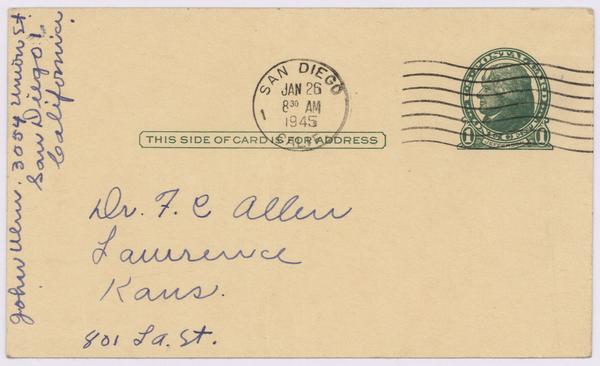 John Wenr. 3054 Union St
San Diego 1,
California.
SAN DIEGO
JAN 26
8 30 AM
1945
1
CALIF.
THIS SIDE OF CARD IS FOR ADDRESS
Dr. F. C Allen
Lawrence
Kans.
801 La. St.